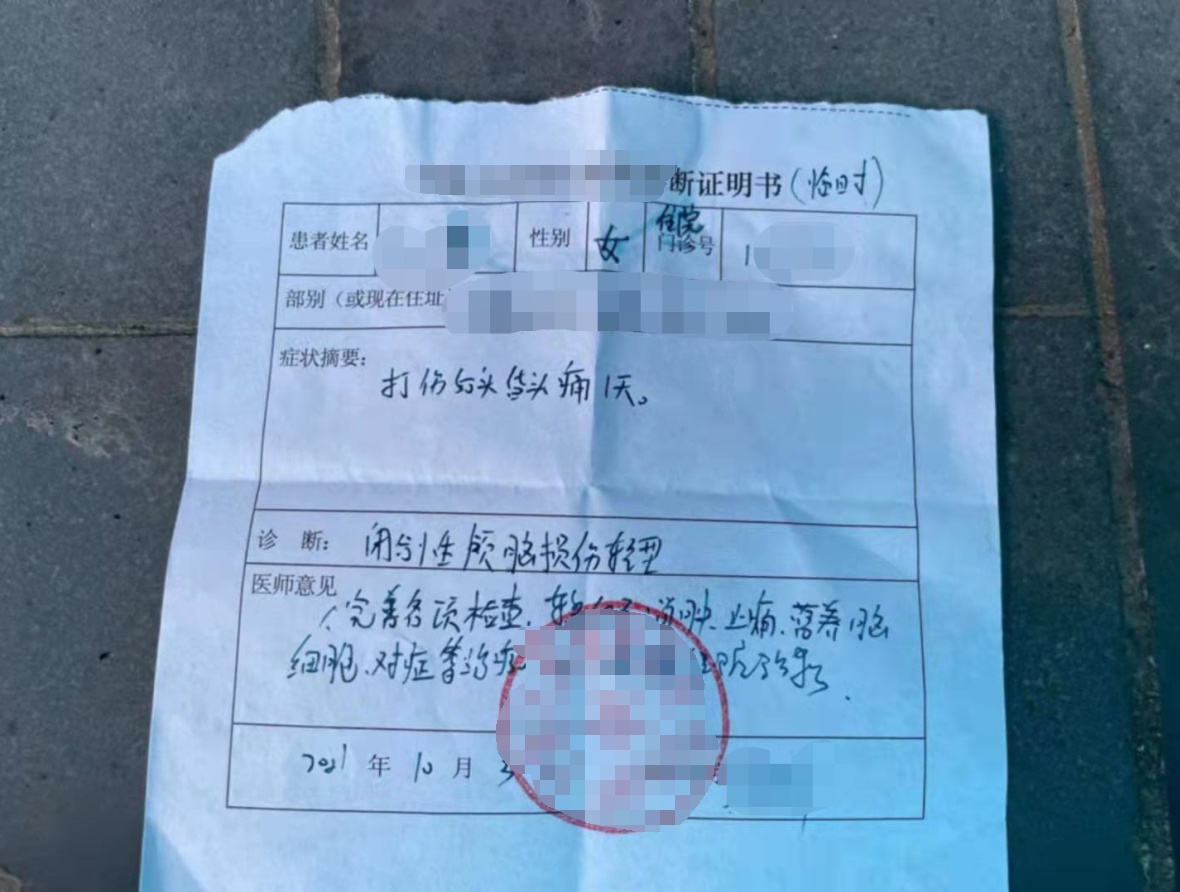 断证明书(临时)
患者姓名 性别 女 住院门诊号 1
部别(或现在住址
症状摘要:
打伤 头痛1天。
诊 断: 闭合性颅脑损伤轻型
医师意见
完善各项检查、 消肿、止痛、营养脑
细胞、对症等治疗
2021 年 10 月 3